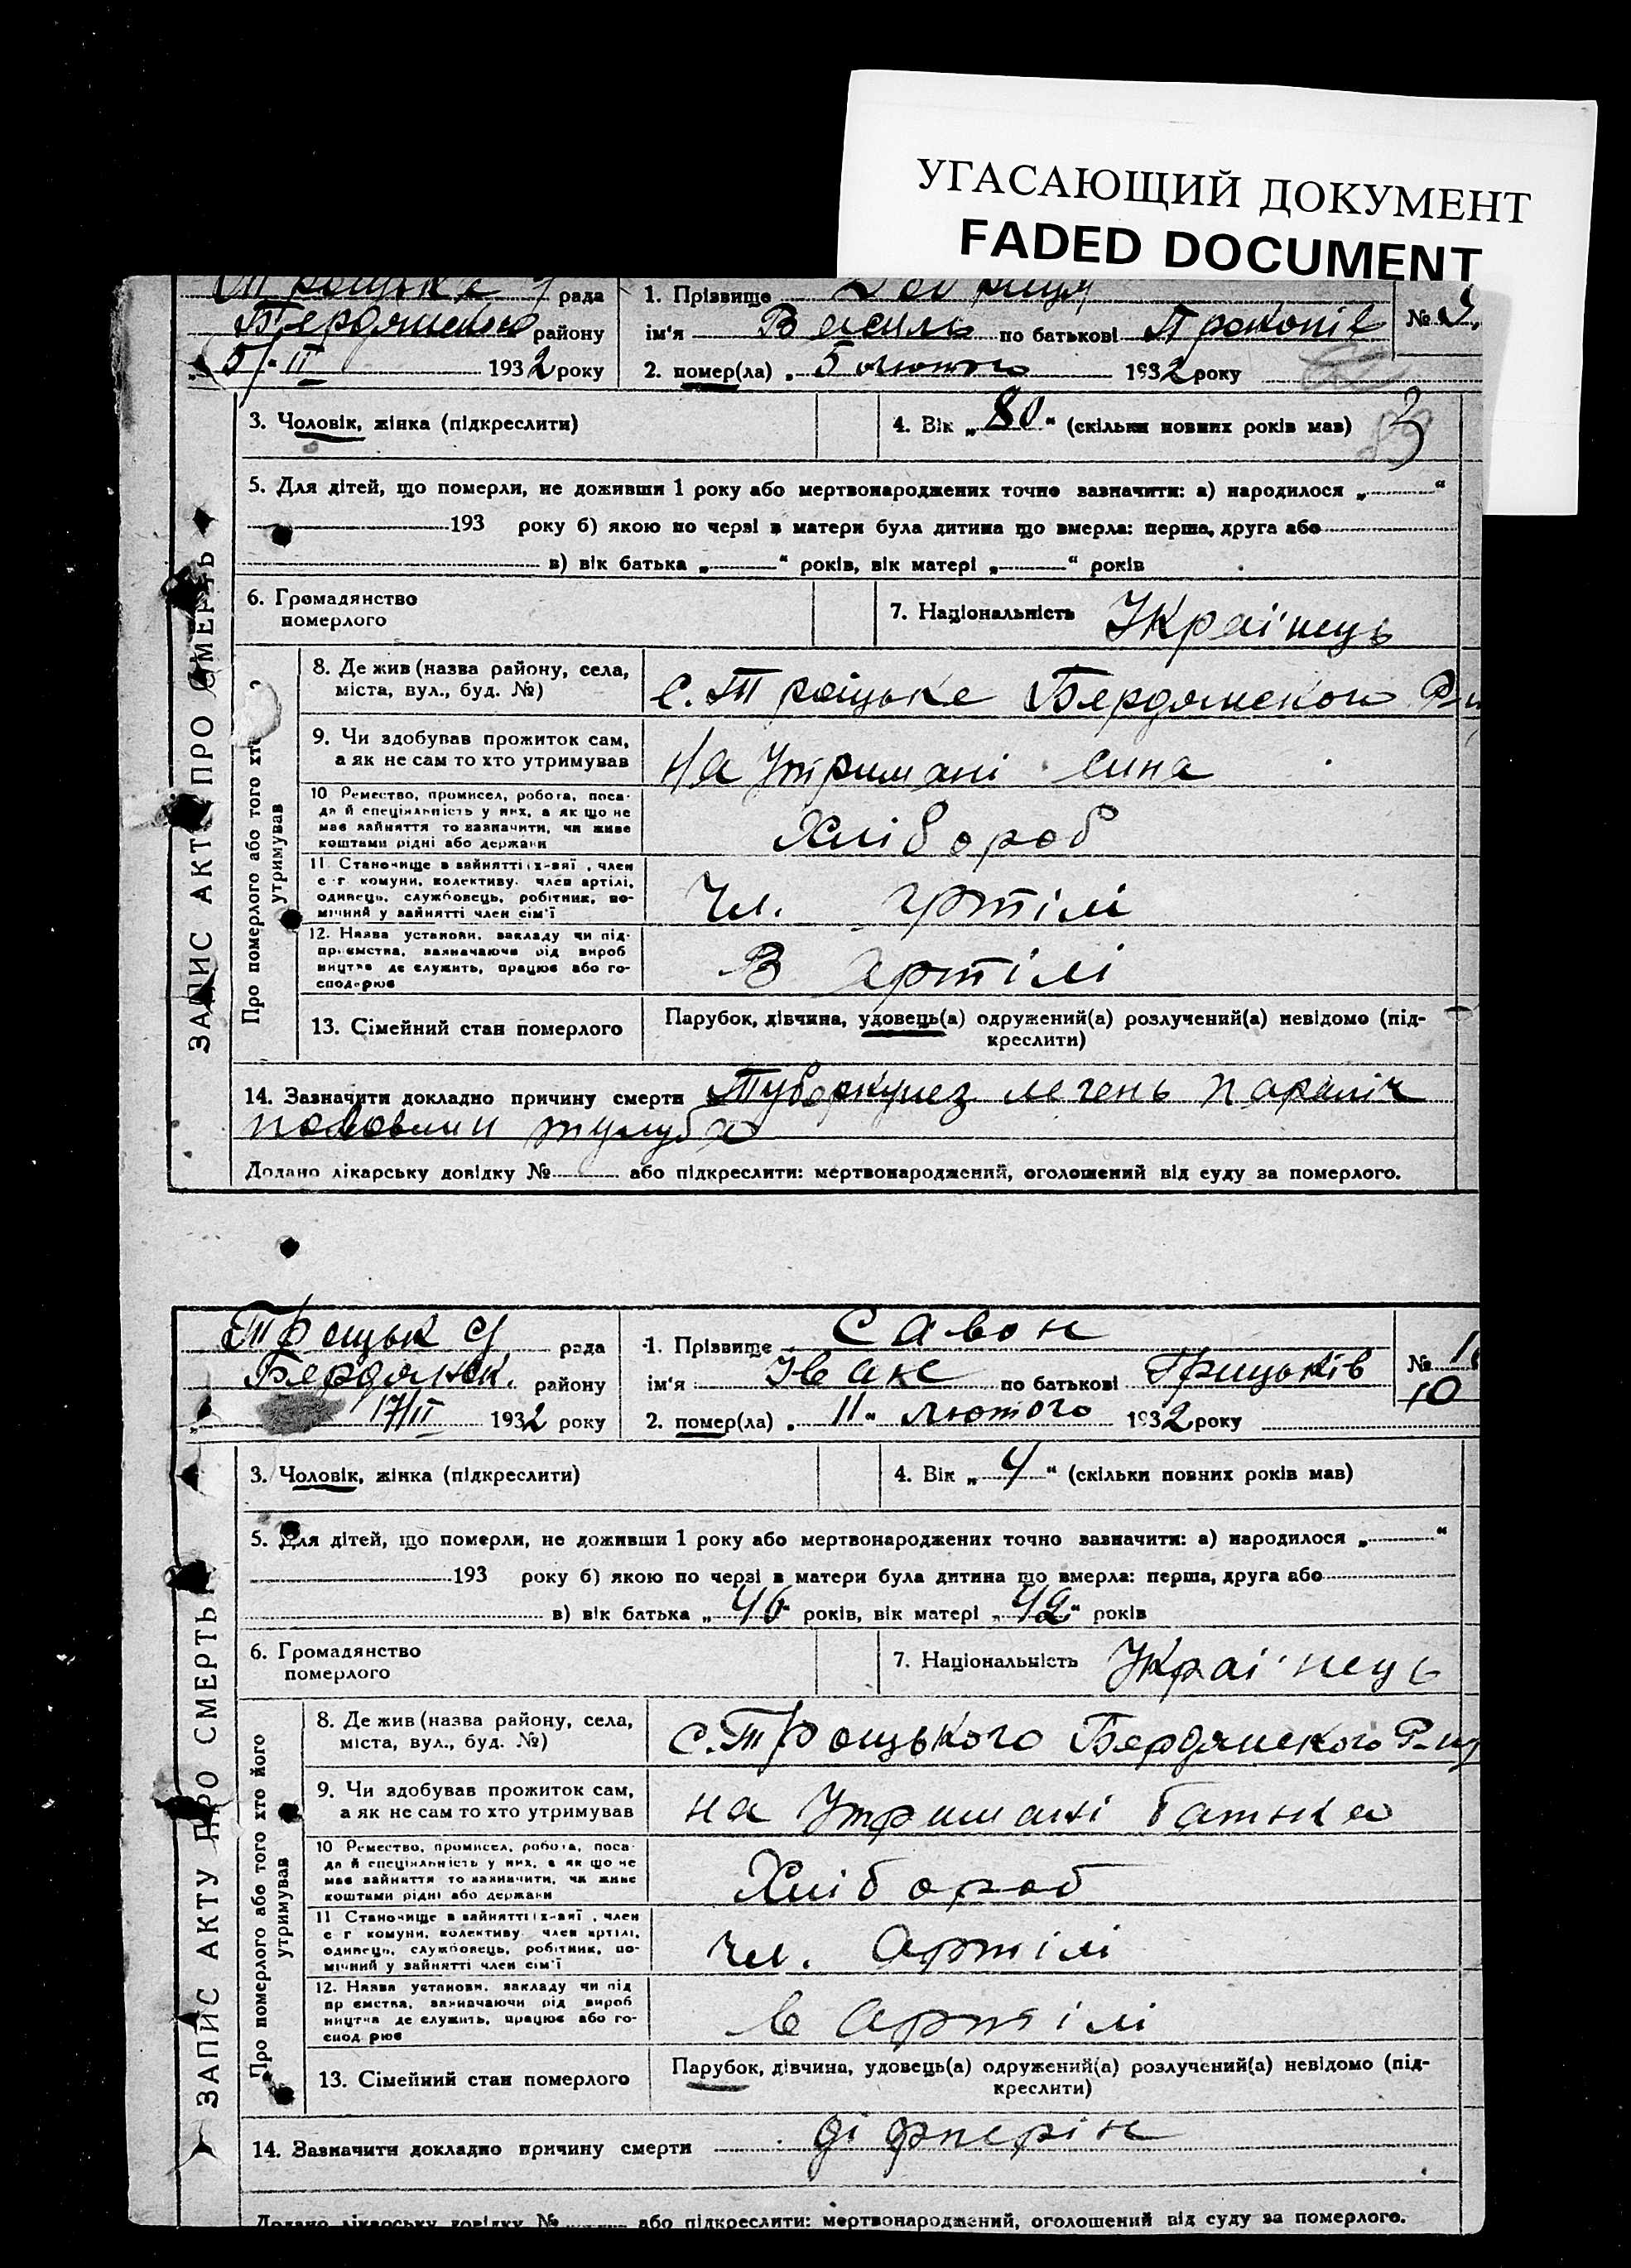 УГАСАЮЩИЙ ДОКУМЕНТ
FADED DOCUMENT
рада
1. Прізвище
Бердянського району
ім'я Василь по батькові Прокопів №
5/-II 1932 року
2. помер(ла) „5 лютого 1932 року
3. Чоловік, жінка (підкреслити)
4. Вік „80“ (скільки повних років мав)
3
5. Для дітей, що померли, не доживши 1 року або мертвонароджених точно зазначити: а) народилося „ “
193 року б) якою по черзі в матери була дитина що вмерла: перша, друга або
в) вік батька „ “ років, вік матері „ “ років
6. Громадянство
померлого
7. Національність Українець
ЗАПИС АКТУ ПРО СМЕРТЬ
Про померлого або того хто
утримував
8. Де жив (назва району, села,
міста, вул., буд. №)
С. Троїцьке Бердянського Р-ну
9. Чи здобував прожиток сам,
а як не сам то хто утримував
На Утримані сина
10 Ремество, промисел, робота, поса-
да й спеціяльність у них, а як що не
має зайняття то зазначити, чи живе
коштами рідні або держави
Хлібороб
11 Становище в зайнятті член
с г комуни, колективу, член артілі,
одинець, службовець, робітник, по-
мічний у зайнятті член сім'ї
Чл. артілі
12. Назва установи, закладу чи під-
приємства, зазначаючи рід вироб
ництва де служить, працює або го-
сподарює
В артілі
13. Сімейний стан померлого
Парубок, дівчина, удовець(а) одружений(а) розлучений(а) невідомо (під-
креслити)
14. Зазначити докладно причину смерти Туборкульоз легень параліч
половини тулуба
Додано лікарську довідку № або підкреслити: мертвонароджений, оголошений від суду за померлого.
рада
1. Прізвище Савон
Бердянськ. району
ім'я Іван по батькові Грицьків № 10
17/II 1932 року
2. помер(ла) „11“ лютого 1932 року
3. Чоловік, жінка (підкреслити)
4. Вік „4“ (скільки повних років мав)
5. Для дітей, що померли, не доживши 1 року або мертвонароджених точно зазначити: а) народилося „ “
193 року б) якою по черзі в матери була дитина що вмерла: перша, друга або
в) вік батька „46“ років, вік матері „42“ років
6. Громадянство
померлого
7. Національність Українець
ЗАПИС АКТУ ПРО СМЕРТЬ
Про померлого або того хто його
утримував
8. Де жив (назва району, села,
міста, вул., буд. №)
с. Троіцького Бердянського Р-ну
9. Чи здобував прожиток сам,
а як не сам то хто утримував
на Утримані батька
10 Ремество, промисел, робота, поса
да й спеціяльність у них, а як що не
має зайняття то зазначити, чи живе
коштами рідні або держави
Хлібороб
11 Становище в зайнятті член
с г комуни, колективу член артілі,
одинець, службовець, робітник, по-
мічний у зайнятті член сім'ї
Чл. Артілі
12. Назва установи, закладу чи під
пр ємства, зазначаючи рід вироб
ництва де служить, працює або го-
спод рює
в Артілі
13. Сімейний стан померлого
Парубок, дівчина, удовець(а) одружений(а) розлучений(а) невідомо (під-
креслити)
14. Зазначити докладно причину смерти діфтерін
Додано лікарську довідку № або підкреслити: мертвонароджений, оголошений від суду за померлого.